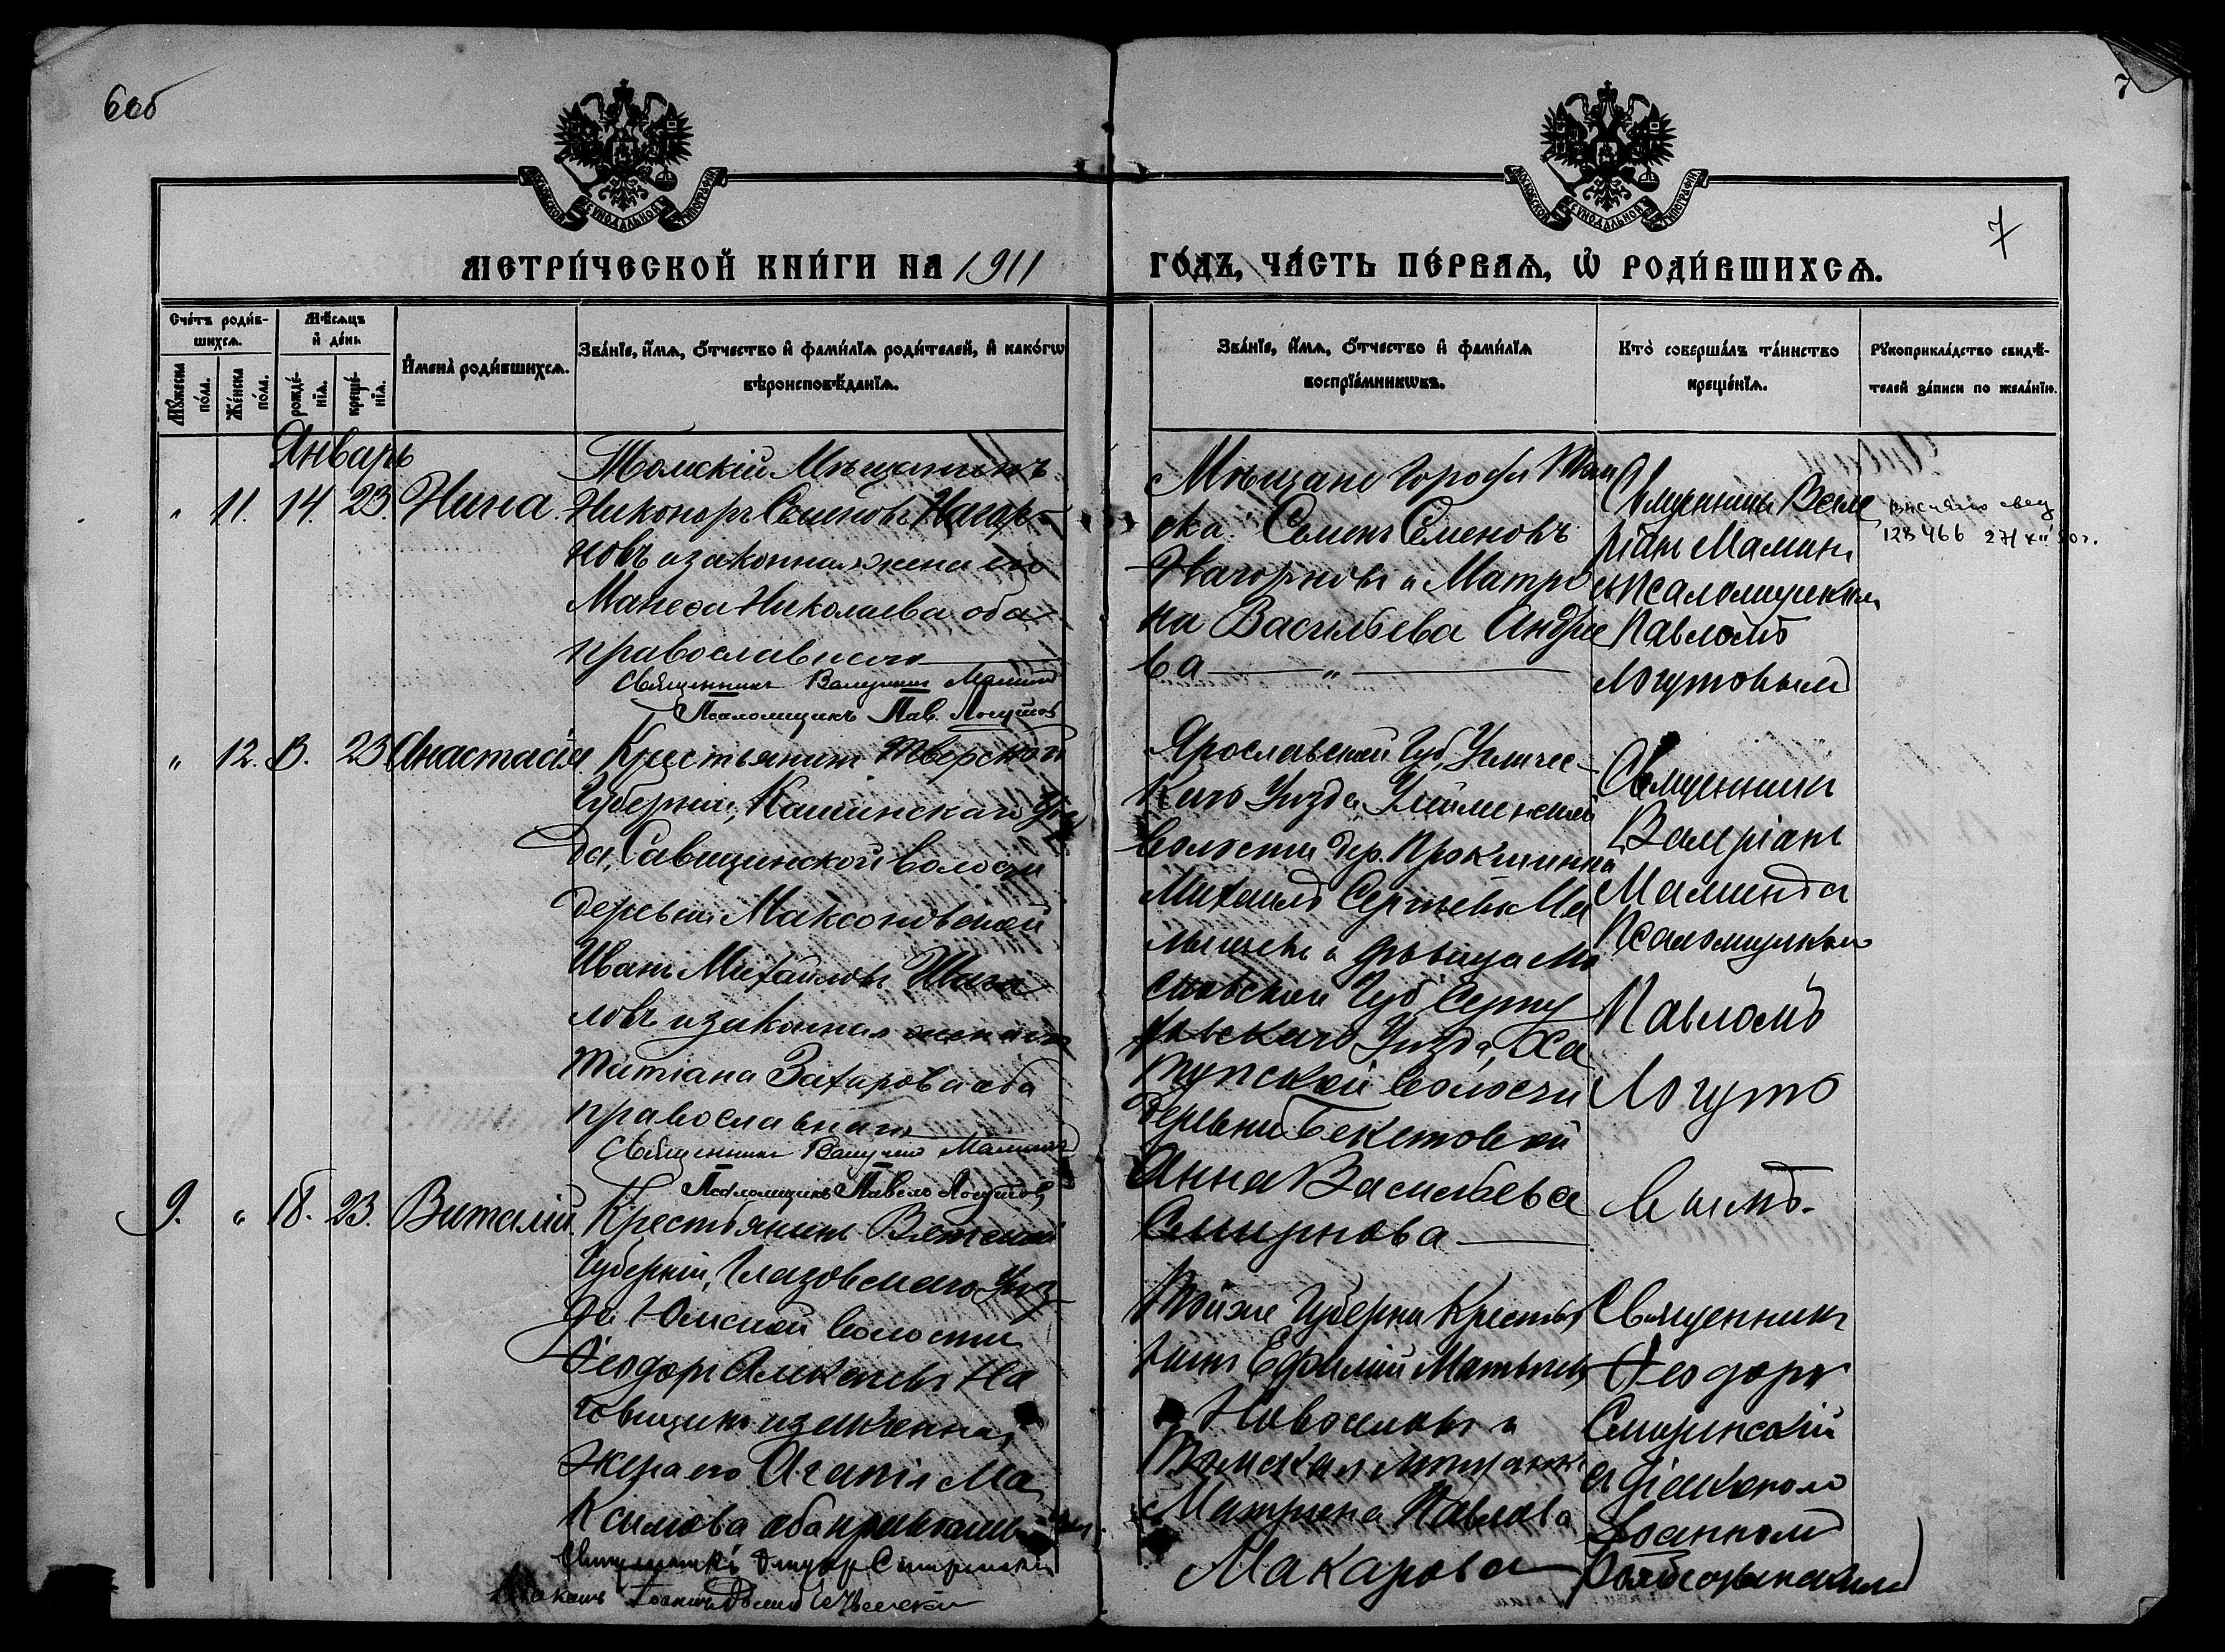 6об
7
МОСКОВСКОЙ СѴНОДАЛЬНОЙ ТИПОГРАФІИ
МОСКОВСКОЙ СѴНОДАЛЬНОЙ ТИПОГРАФІИ
7
МЕТРИ́ЧЕСКОЙ КНИ́ГИ НА 1911
ГО́ДЪ, ЧА́СТЬ ПЕ́РВАѦ, Ѡ҆ РОДИ́ВШИХСѦ.
Сче́тъ роди́в-
шихсѧ.
Мꙋ́жеска по́ла.
Же́нска по́ла.
Мѣ́сѧцъ
и҆ де́нь
рожде́-
нїѧ.
креще́-
нїѧ.
И҆мена̀ роди́вшихсѧ.
Зва́нїе, и҆́мѧ, ѻ҆́тчество и҆ фами́лїѧ роди́телей, и҆ како́гѡ
вѣроисповѣ́данїѧ.
Зва́нїе, и҆́мѧ, ѻ҆́тчество и҆ фами́лїѧ
воспрїе́мникѡвъ.
Кто̀ соверша́лъ та́инство
креще́нїѧ.
Рꙋкоприкла́дство свидѣ́-
телей за́писи по жела́нїю.
Январь
" 11. 14. 23. Нина.
Томскій Мѣщанинъ
Никоноръ Семеновъ Нагор-
новъ и законная жена его
Николаева оба
православнаго
Священникъ Валеріанъ Маминъ
Псаломщикъ Пав. Логутовъ
Мѣщане города Том
ска Семенъ Семеновъ
Нагорновъ и Матре
на Васильева Андрее
ва — " —
Священникъ Вале
ріанъ Маминъ
съ Псаломщикомъ
Павломъ
Логутовымъ
128466 27/XII 50г.
" 12. 13. 23 Анастасія.
Крестьянинъ Тверской
Губерніи, Кашинскаго Уѣз
да, Савцинской волости
деревни Максоновской
Иванъ Михайловъ Шига
ловъ и законная жена его
Татіана Захарова оба
православнаго
Священникъ Валеріанъ Маминъ
Псаломщикъ Павелъ Логутовъ
Ярославской Губ, Углич-
каго Уѣзда
волости дер.
Михаилъ Сергѣевъ Ма
лышевъ и дѣвица Мо
сковской Губ Серпу
ховскаго Уѣзда, Ха
тунской волости
деревни Бекетовской
Анна Васильева
Смирнова
Священникъ
Валеріанъ
Маминъ съ
Псаломщикомъ
Павломъ
Логуто
вымъ.
9. " 18. 23. Виталій.
Крестьянинъ Вятской
Губерніи, Глазовскаго Уѣз
да Юмской волости
Ѳеодоръ Алексѣевъ На
говицинъ и законная
жена его Агапія Ма
ксимова оба православн.
Священникъ Ѳеодоръ Смиренскій
Діаконъ Іоаннъ
Тойже Губерніи Крестья
нинъ Ефимій Матвѣевъ
Новоселовъ и
Томская мѣщанка
Матрена Павлова
Макарова
Священникъ
Ѳеодоръ
Смиренскій
съ діакономъ
Іоанномъ